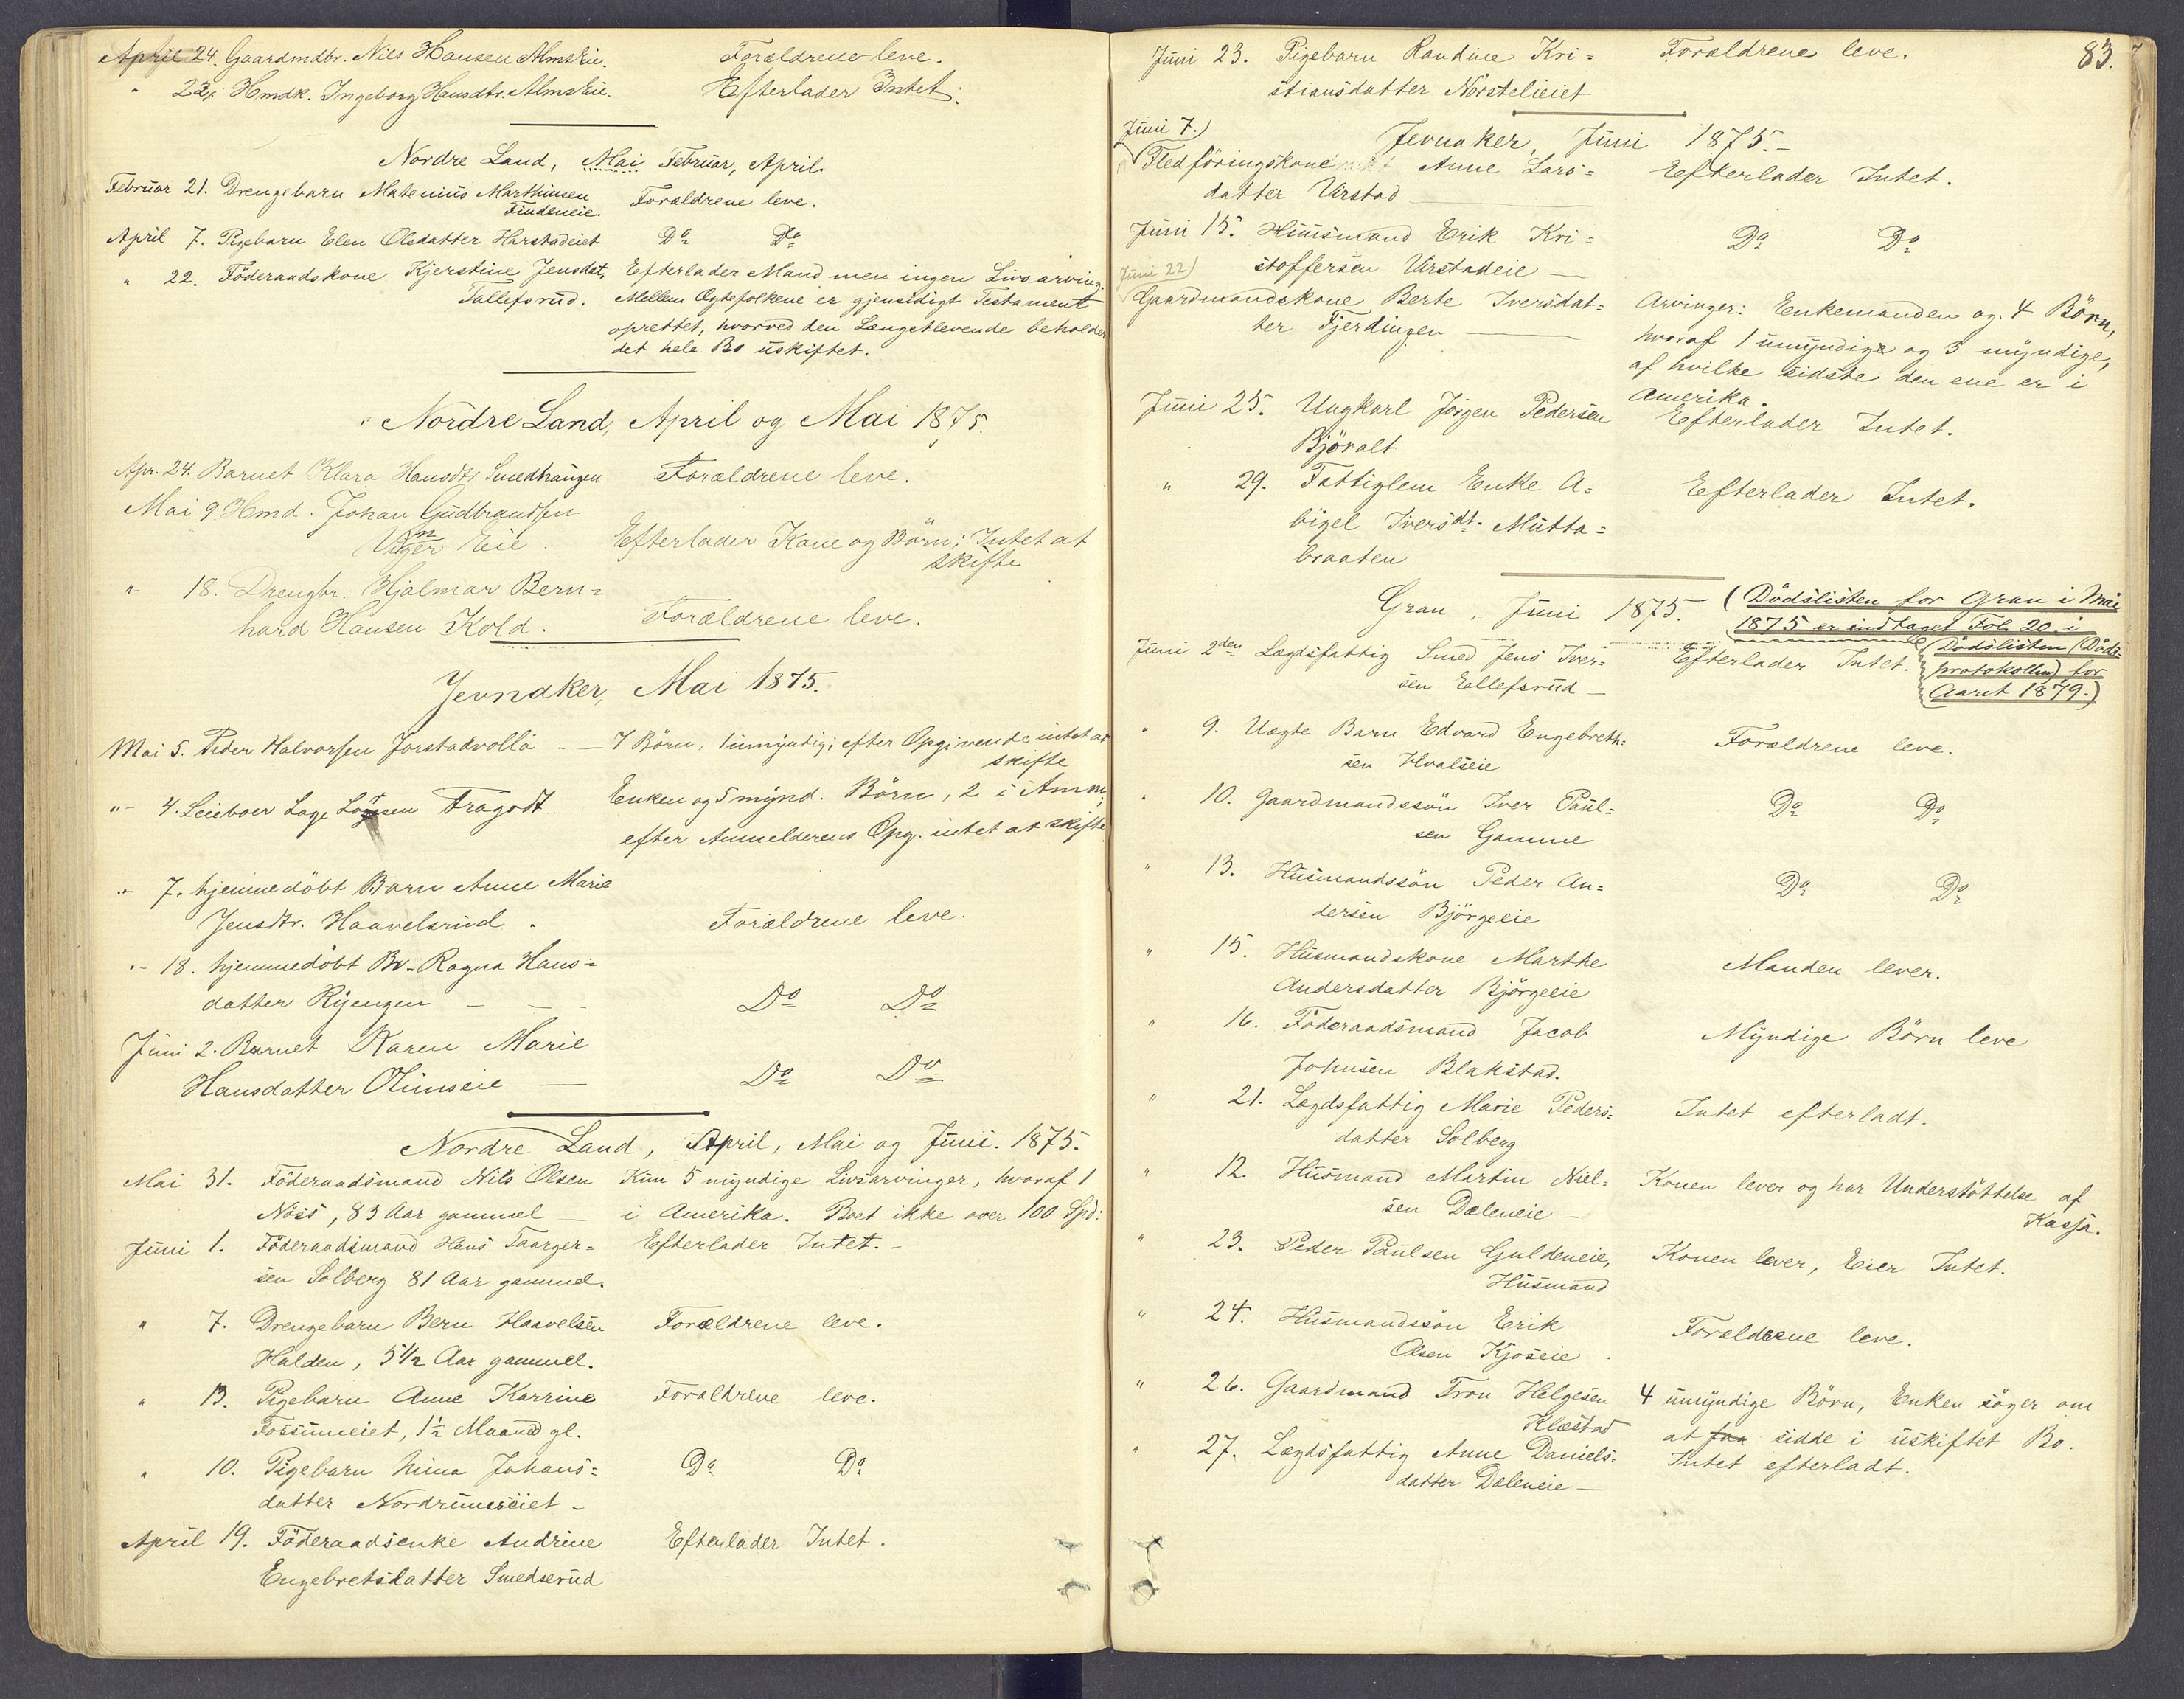 April 24. Gaardmdbr. Nils Hansen Almslie. Forældrene leve.
" 23. Hmdk. Ingeborg Hansdtr. Almslie. Efterlader Intet.
Nordre Land, Mai Februar, April
Februar 21. Drengebarn Matenius Marthinsen Forældrene leve.
Findeneie.
April 7. Pigebarn Elen Olsdatter Harstadeiet Do Do
" 22. Föderaadskone Kjerstine Jensdat. Efterlader Mand men ingen Livsarving.
Tollefsrud. Mellem Ægtefolkene er gjensidigt Testament
oprettet, hvorved den Længstlevende beholder
det hele Bo uskiftet.
Nordre Land, April og Mai 1875.
Apr. 24. Barnet Klara Hansdtr Smedhaugen Forældrene leve.
Mai 9. Hmd. Johan Gudbrandsen
Eie. Efterlader Kone og Börn; Intet at
skifte
" 18. Drengbr. Hjalmar Bern=
hard Hansen Kold. Forældrene leve.
Jevnaker, Mai 1875.
Mai 5. Peder Halvorsen Jorstadvolla - - 7 Börn, 1 umyndig; efter Opgivende intet at
skifte
"- 4. Leieboer Lage Larsen Fragodt. Enken og 5 mynd. Börn, 2 i Amrk;
efter Anmelderens Opg. intet at skifte
"- 7. hjemmedöbt Barn Anne Marie
Jensdtr. Haavelsrud. Forældrene leve.
"- 18. hjemmedöbt Br. Ragna Hans=
datter Ryengen - - - Do Do
Juni 2. Barnet Karen Marie
Hansdatter Olimseie — Do Do
Nordre Land, April, Mai og Juni. 1875.
Mai 31. Föderaadsmand Nils Olsen Kun 5 myndige Livsarvinger, hvoraf 1
Næss, 83 Aar gammel — i Amerika. Boet ikke over 100 Spd:
Juni 1. Föderaadsmand Hans Taarger= Efterlader Intet. -
sen Solberg 81 Aar gammel.
" 7. Drengebarn Bern Haavelsen Forældrene leve.
Halden, 5 1/2 Aar gammel.
" 13. Pigebarn Anne Karrine Forældrene leve.
Fossumeiet, 1 1/2 Maaned gl.
" 10. Pigebarn Nina Johans= Do Do
datter Nordrumseiet -
April 19. Föderaadsenke Andrine Efterlader Intet.
Engebretsdatter Smedserud
83.
Juni 23. Pigebarn Randine Kri= Forældrene leve.
stiansdatter Nörstelieiet
Juni 7.)
Jevnaker, Juni 1875. -
Fledföringskone Anne Lars= Efterlader Intet.
datter Virstad
Juni 15. Huusmand Erik Kri= Do Do
stoffersen Virstadeie —
Juni 22)
Gaardmandskone Berte Iversdat= Arvinger: Enkemanden og 4 Börn,
ter Fjerdingen — hvoraf 1 umyndige og 3 myndige,
af hvilke sidste den ene er i
Amerika.
Juni 25. Ungkarl Jörgen Pedersen Efterlader Intet.
Björalt
" 29. Fattiglem Enke A= Efterlader Intet.
bigel Iversdt. Mutta=
braaten
Gran, Juni 1875. (Dödslisten for Gran i Mai
1875 er indtaget Fol. 20 i
Dödslisten (Döds=
protokollen) for
Aaret 1879.)
Juni 2den Lægdsfattig Smed Jens Iver= Efterlader Intet.
sen Ellefsrud —
" 9. Uægte Barn Edvard Engebreth= Forældrene leve.
sen Hvalseie
" 10. Gaardmandssön Iver Paul= Do Do
sen Gamme
" 13. Husmandssön Peder An= Do Do
dersen Björgeeie
" 15. Husmandskone Marthe Manden lever.
Andersdatter Björgeeie
" 16. Föderaadsmand Jacob Myndige Börn leve
Johnsen Blakstad.
" 21. Lægdsfattig Marie Peders= Intet efterladt.
datter Solberg
" 12. Husmand Martin Niel= Konen lever og har Understöttelse af
sen Dæleneie — Kassa.
" 23. Peder Paulsen Guldeneie, Konen lever, Eier Intet.
Husmand
" 24. Husmandssön Erik Forældrene leve.
Olsen Kjoseie.
" 26. Gaardmand Tron Helgesen 4 umyndige Börn, Enken söger om
Klæstad at faa sidde i uskiftet Bo.
" 27. Lægdsfattig Anne Daniels= Intet efterladt.
datter Dæleneie —